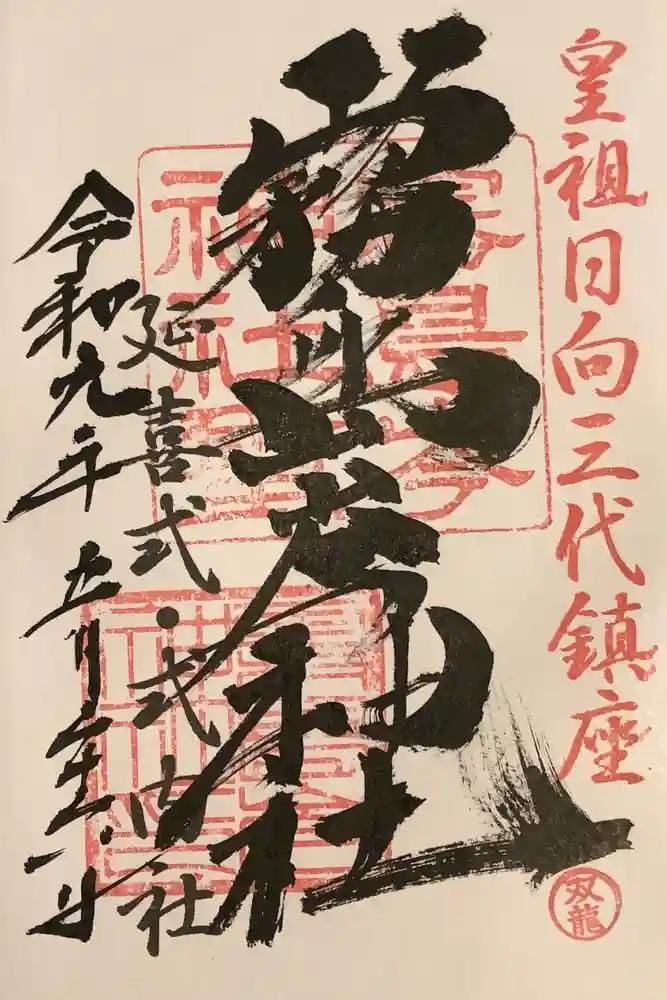 皇祖日向三代鎮座
霧島岑神社
延喜式・式内社
令和九年五月
双龍